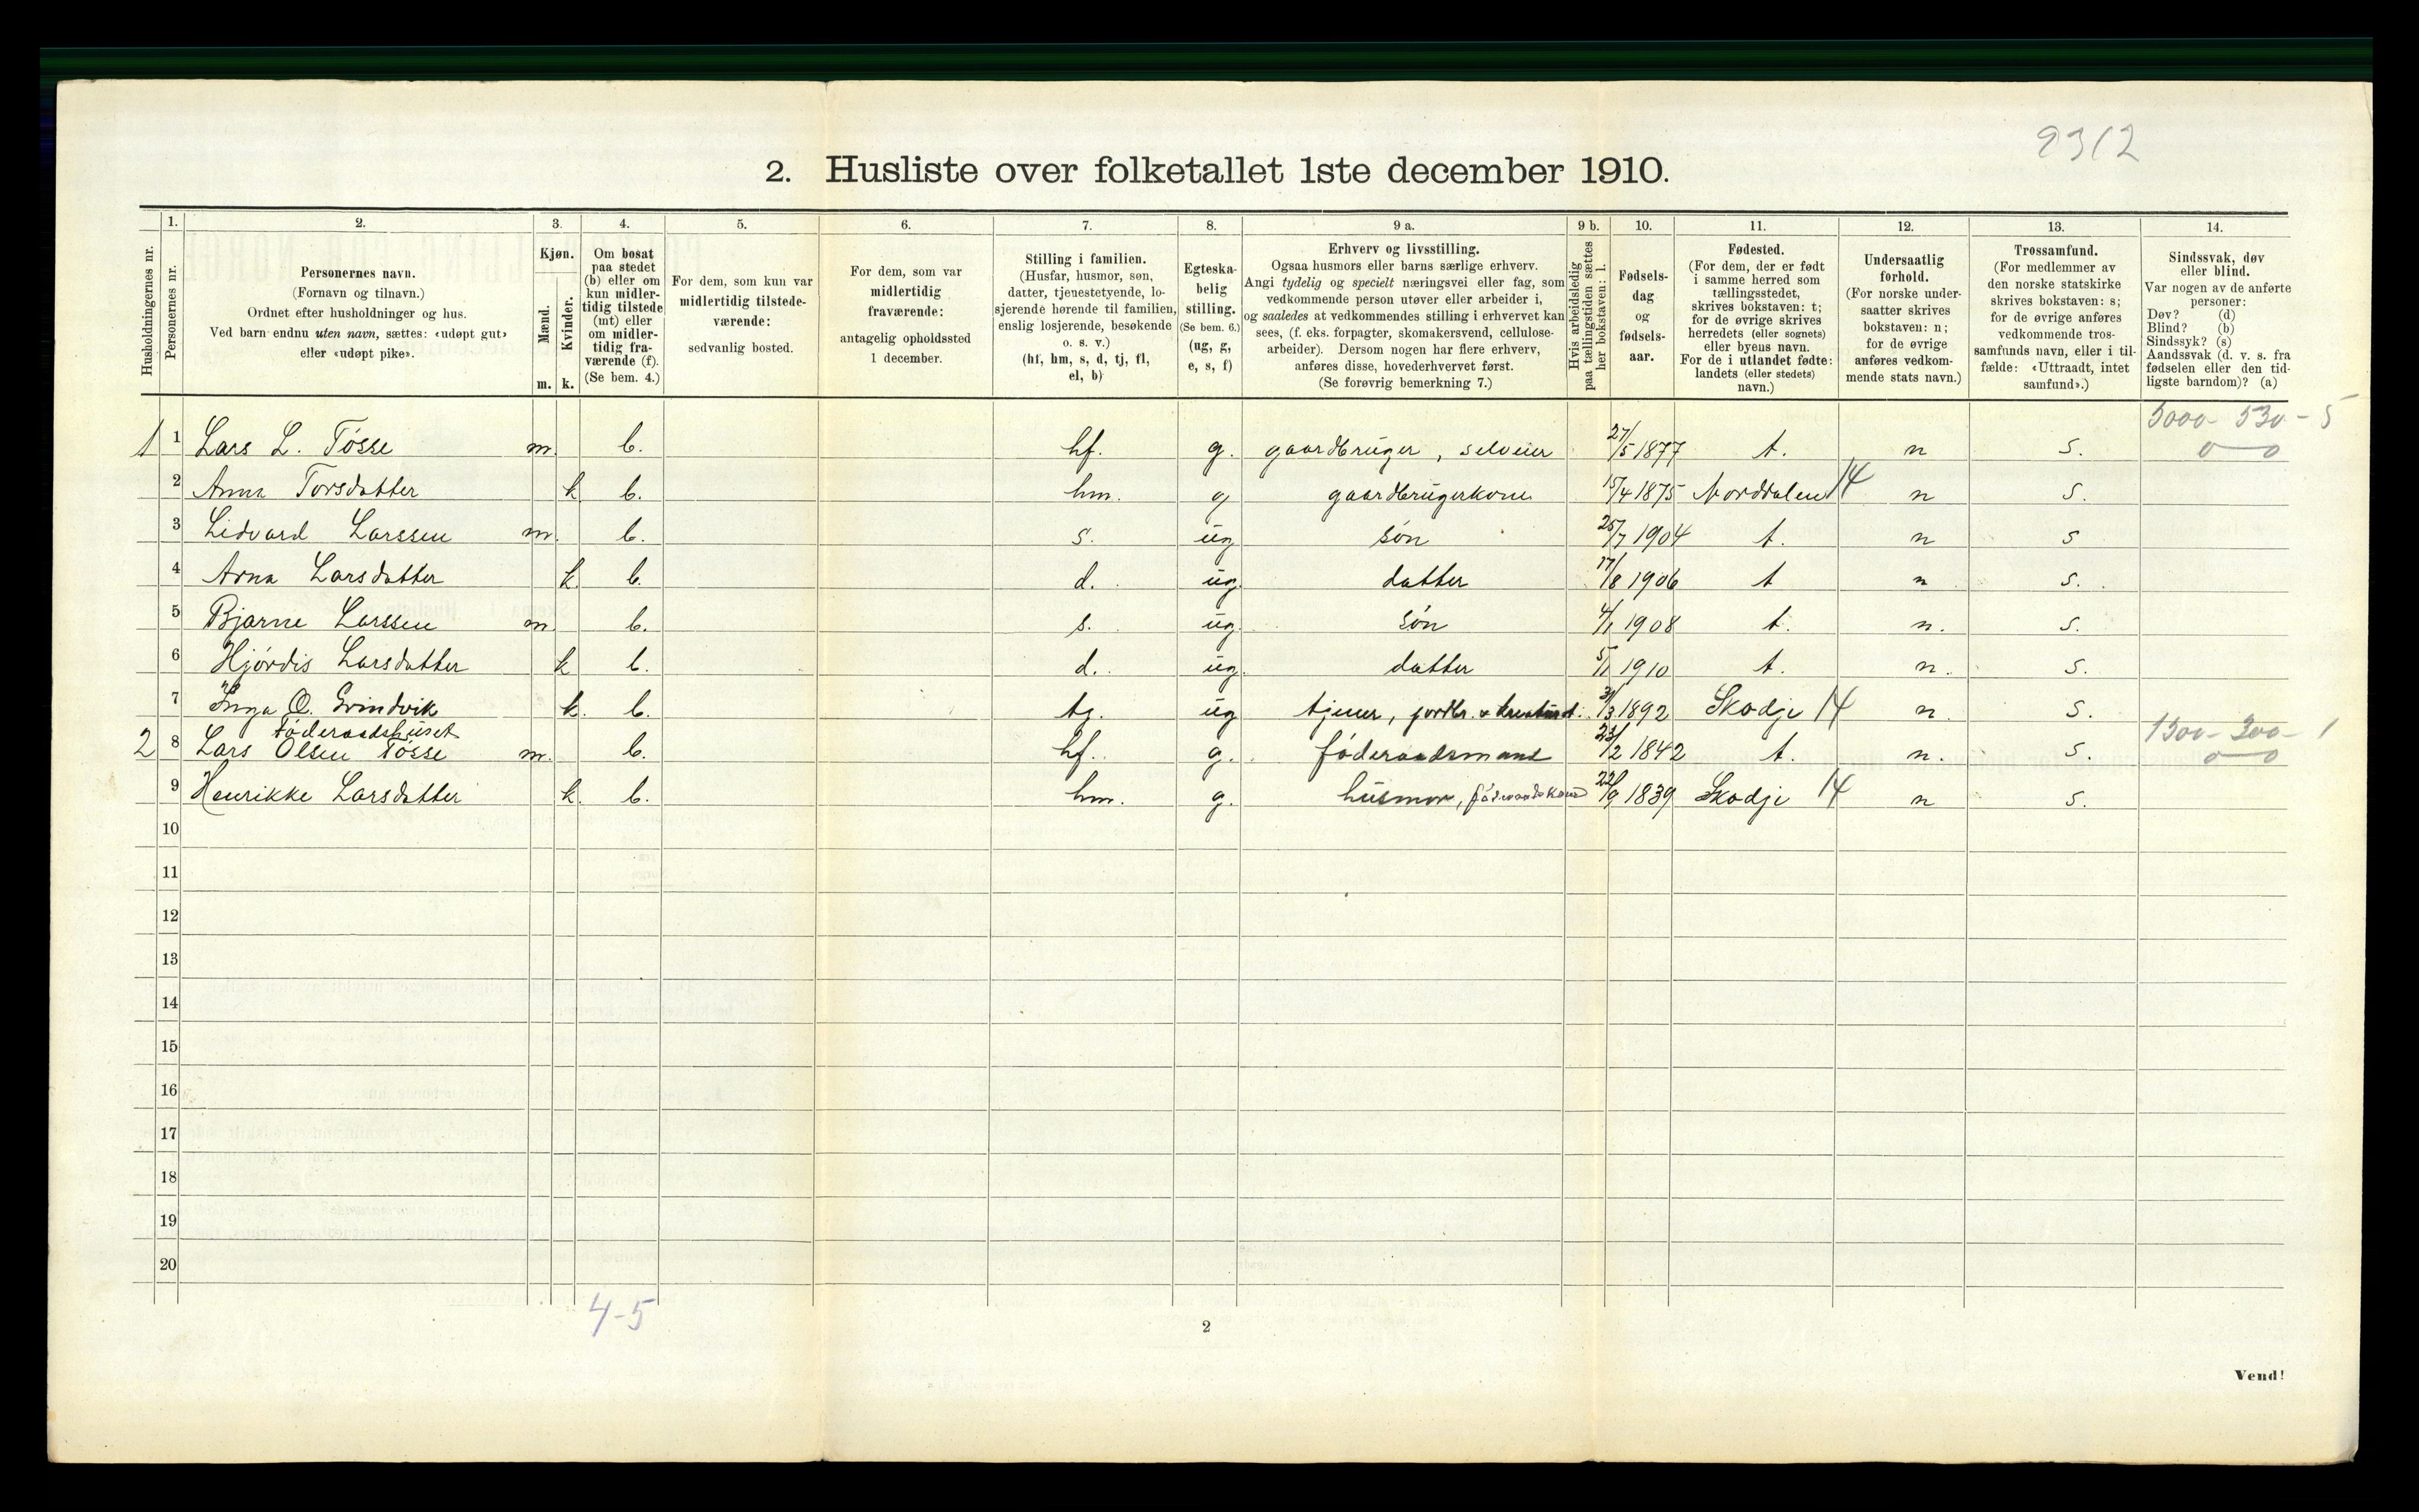 2312
2. Husliste over folketallet 1ste december 1910.
1. 2. 3. 4. 5. 6. 7. 8. 9 a. 9 b. 10. 11. 12. 13. 14.
Husholdningernes nr.
Personernes nr.
Personernes navn.
(Fornavn og tilnavn.)
Ordnet efter husholdninger og hus.
Ved barn endnu uten navn, sættes: «udøpt gut»
eller «udøpt pike».
Kjøn.
Mænd.
Kvinder.
m. k.
Om bosat
paa stedet
(b) eller om
kun midler-
tidig tilstede
(mt) eller
om midler-
tidig fra-
værende (f).
(Se bem. 4.)
For dem, som kun var
midlertidig tilstede-
værende:
sedvanlig bosted.
For dem, som var
midlertidig
fraværende:
antagelig opholdssted
1 december.
Stilling i familien.
(Husfar, husmor, søn,
datter, tjenestetyende, lo-
sjerende hørende til familien,
enslig losjerende, besøkende
o. s. v.)
(hf, hm, s, d, tj, fl,
el, b)
Egteska-
belig
stilling.
(Se bem. 6.)
(ug, g,
e, s, f)
Erhverv og livsstilling.
Ogsaa husmors eller barns særlige erhverv.
Angi tydelig og specielt næringsvei eller fag, som
vedkommende person utøver eller arbeider i,
og saaledes at vedkommendes stilling i erhvervet kan
sees, (f. eks. forpagter, skomakersvend, cellulose-
arbeider). Dersom nogen har flere erhverv,
anføres disse, hovederhvervet først.
(Se forøvrig bemerkning 7.)
Hvis arbeidsledig
paa tællingstiden sættes
her bokstaven: l.
Fødsels-
dag
og
fødsels-
aar.
Fødested.
(For dem, der er født
i samme herred som
tællingsstedet,
skrives bokstaven: t;
for de øvrige skrives
herredets (eller sognets)
eller byeus navn.
For de i utlandet fødte:
landets (eller stedets)
navn.)
Undersaatlig
forhold.
(For norske under-
saatter skrives
bokstaven: n;
for de øvrige
anføres vedkom-
mende stats navn.)
Trossamfund.
(For medlemmer av
den norske statskirke
skrives bokstaven: s;
for de øvrige anføres
vedkommende tros-
samfunds navn, eller i til-
fælde: «Uttraadt, intet
samfund».)
Sindssvak, døv
eller blind.
Var nogen av de anførte
personer:
Døv? (d)
Blind? (b)
Sindssyk? (s)
Aandssvak (d. v. s. fra
fødselen eller den tid-
ligste barndom)? (a)
5000 - 530 - 5
1 1 Lars L. Tøsse m. b. hf. g. gaardbruger, selveier 27/5 1877 t. n s. 0 — 0
2 Anna Torsdatter k b. hm. g gaardbrugerkone 15/4 1875 Norddalen 14 n s.
3 Lidvard Larssen m. b. s. ug søn 25/7 1904 t. n s
4 Arna Larsdatter k b. d. ug. datter 17/8 1906 t n s.
5 Bjarne Larssen m b. s. ug. søn 4/1 1908 t. n. s.
6 Hjørdis Larsdatter k b. d. ug. datter 5/11 1910 t. n. s.
7 Inga O. Grindvik k. b. tj. ug tjener, jordbr. & kreaturst. 31/3 1892 Skodje 14 n. s.
Føderaadshuset
1300 - 200 - 1
2 8 Lars Olsen Tøsse m. b. hf. g. føderaadsmand 23/2 1842 t. n. s. 0 — 0
9 Henrikke Larsdatter k. b. hm. g. husmor, føderaadskone 22/9 1839 Skodje 14 n s.
10
11
12
13
14
15
16
17
18
19
20
4-5
2
Vend!